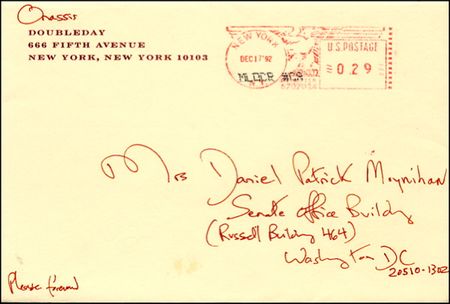 Onassis
DOUBLEDAY
666 FIFTH AVENUE
NEW YORK, NEW YORK 10103
NEW YORK
DEC17'92
N.Y.
U.S. POSTAGE
0.29
Mrs Daniel Patrick Moynihan
Senate Office Building
(Russell Building 464)
Washington DC
20510-1302
Please forward